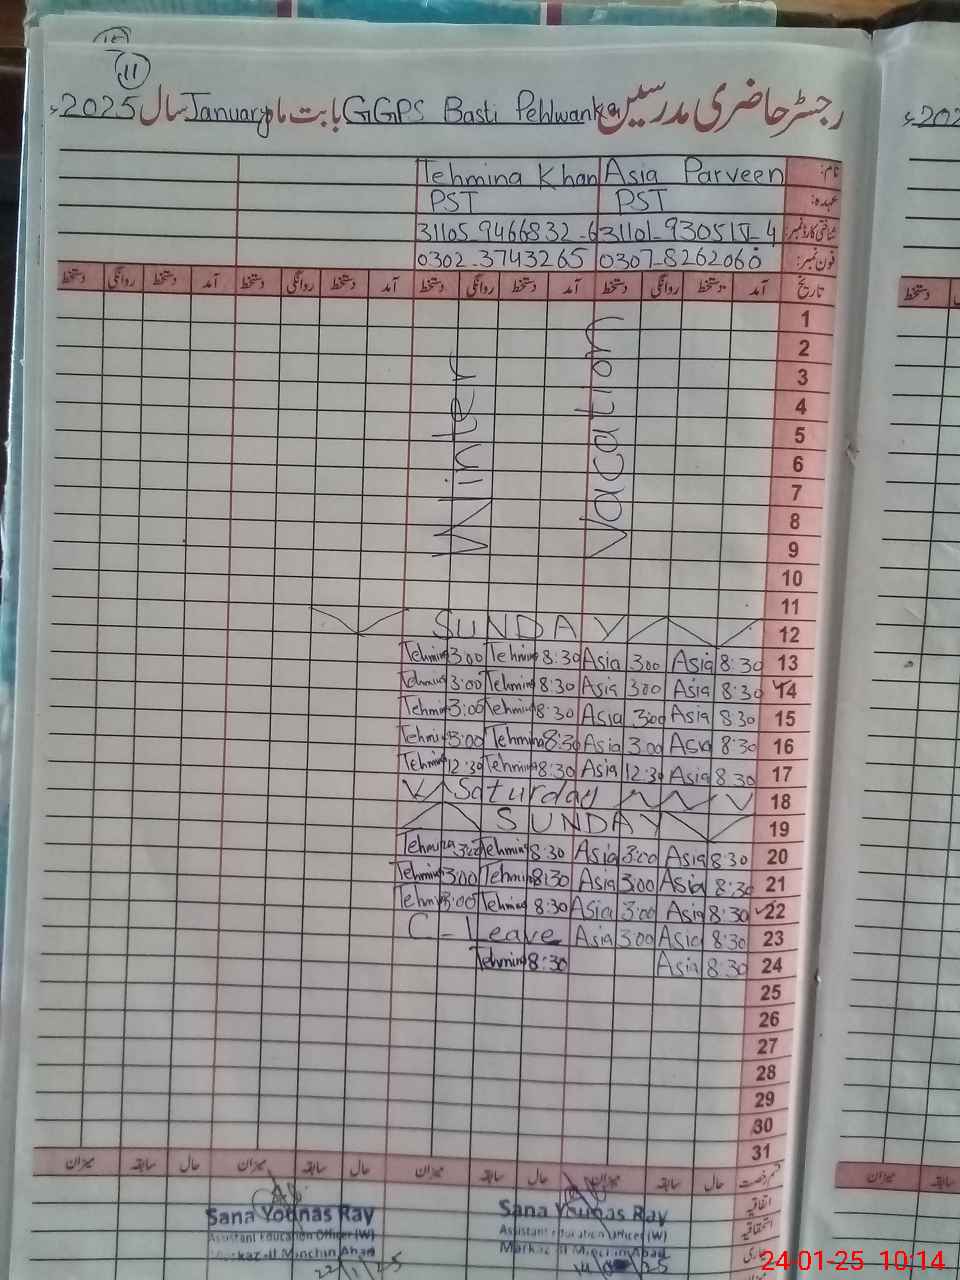 11
رجسٹر حاضری مدرسین GGPS Basti Pehlwanka بابت ماہ January سال 2025ء
نام: Asia Parveen Tehmina Khan
عہدہ: PST PST
شناختی کارڈ نمبر: 31105-9466832-6
فون نمبر: 0307-8262060 0302-3743265
تاریخ آمد دستخط روانگی دستخط آمد دستخط روانگی دستخط آمد دستخط روانگی دستخط آمد دستخط روانگی دستخط
1
2
3
4
5
6
7
8
9
10
11
Winter Vacation
12 SUNDAY
13 8:30 Asia 3:00 Asia 8:30 Tehmina 3:00 Tehmina
14 8:30 Asia 3:00 Asia 8:30 Tehmina 3:00 Tehmina
15 8:30 Asia 3:00 Asia 8:30 Tehmina 3:00 Tehmina
16 8:30 Asia 3:00 Asia 8:30 Tehmina 3:00 Tehmina
17 8:30 Asia 12:30 Asia 8:30 Tehmina 12:30 Tehmina
18 Saturday
19 SUNDAY
20 8:30 Asia 3:00 Asia 8:30 Tehmina 3:00 Tehmina
21 8:30 Asia 3:00 Asia 8:30 Tehmina 3:00 Tehmina
22 8:30 Asia 3:00 Asia 8:30 Tehmina 3:00 Tehmina
23 8:30 Asia 3:00 Asia C-Leave
24 8:30 Asia 8:30 Tehmina
25
26
27
28
29
30
31
قسم رخصت حال سابقہ میزان حال سابقہ میزان حال سابقہ میزان حال سابقہ میزان
اتفاقیہ
استحقاقیہ
بیماری
Sana Younas Ray
Assistant Education Officer (W)
Markaz II Minchin Abad
22/1/25
Sana Younas Ray
Assistant Education Officer (W)
Markaz II Minchin Abad
2025ء
دستخط
میزان سابقہ
24-01-25 10:14